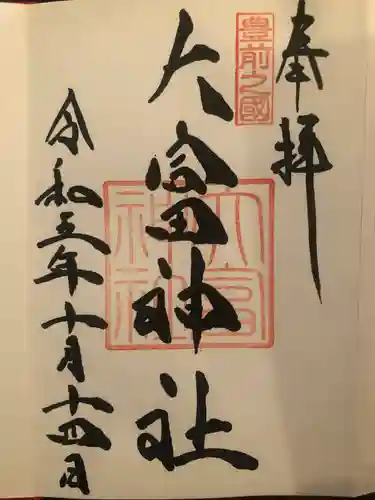 奉拝
豊前之國
大富神社
大富神社
令和五年十月十四日